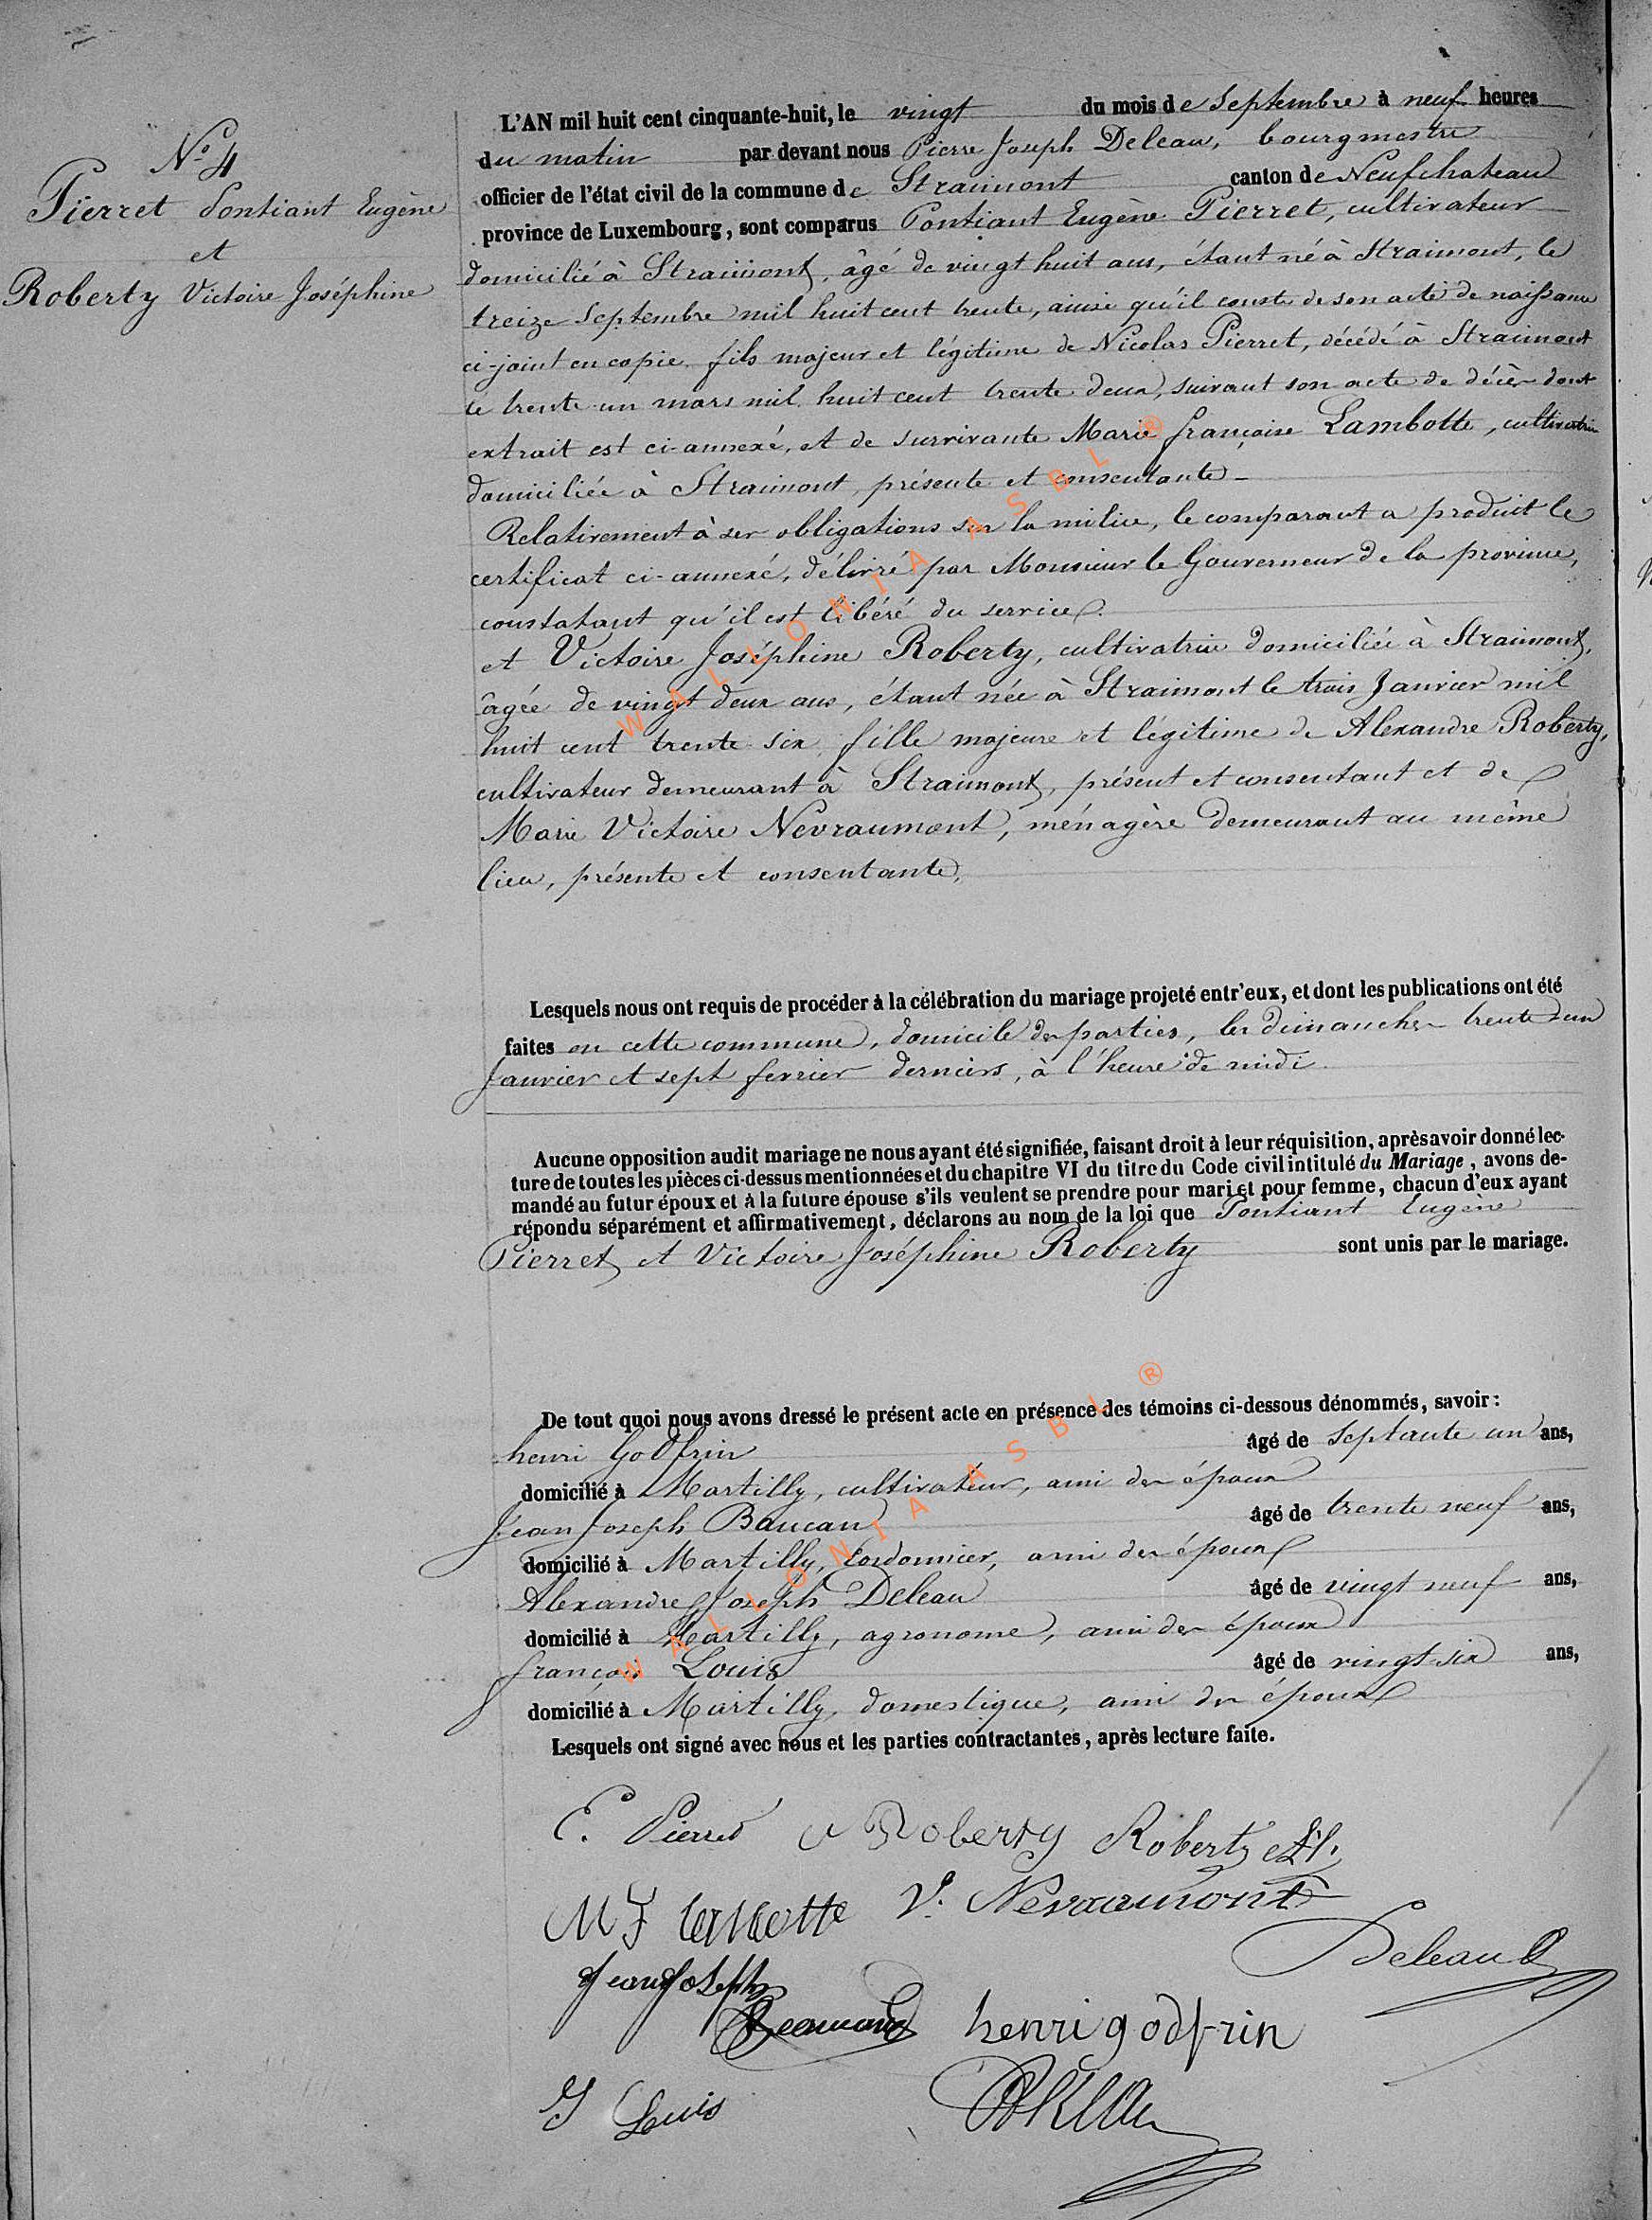 N° 4
Pierret Pontiant Eugène
et
Roberty Victoire Joséphine
L'AN mil huit cent cinquante-huit, le vingt du mois de Septembre à neuf heures
du matin par devant nous Pierre Joseph Deleau, bourgmestre
officier de l'état civil de la commune de Straimont canton de Neufchateau
province de Luxembourg, sont comparus Pontiant Eugène Pierret, cultivateur
domicilié à Straimont, âgé de vingt huit ans, étant né à Straimont, le
treize Septembre mil huit cent trente, ainsi qu'il conste de son acte de naissance
ci-joint en copie. fils majeur et légitime de Nicolas Pierret, décédé à Straimont
le trente un mars mil huit cent trente deux, suivant son acte de décès dont
extrait est ci-annexé, et de survivante Marie françoise Lambotte, cultivatrice
domiciliée à Straimont, présente et consentante
Relativement à ses obligations sur la milice, le comparant a produit le
certificat ci-annexé, délivré par Monsieur le Gouverneur de la province,
constatant qu'il est libéré du service.
et Victoire Joséphine Roberty, cultivatrice domiciliée à Straimont,
âgée de vingt deux ans, étant née à Straimont le trois Janvier mil
huit cent trente six, fille majeure et légitime de Alexandre Roberty,
cultivateur demeurant à Straimont, présent et consentant et de
Marie Victoire Nevraumont, ménagère demeurant au même
lieu, présente et consentante,
Lesquels nous ont requis de procéder à la célébration du mariage projeté entr'eux, et dont les publications ont été
faites en cette commune, domicile des parties, les dimanches trente un
Janvier et sept fevrier derniers, à l'heure de midi.
Aucune opposition audit mariage ne nous ayant été signifiée, faisant droit à leur réquisition, après avoir donné lec-
ture de toutes les pièces ci-dessus mentionnées et du chapitre VI du titre du Code civil intitulé du Mariage, avons de-
mandé au futur époux et à la future épouse s'ils veulent se prendre pour mari et pour femme, chacun d'eux ayant
répondu séparément et affirmativement, déclarons au nom de la loi que Pontiant Eugène
Pierret et Victoire Joséphine Roberty sont unis par le mariage.
De tout quoi nous avons dressé le présent acte en présence des témoins ci-dessous dénommés, savoir:
henri Godfrin âgé de septante un ans,
domicilié à Martilly, cultivateur, ami des époux
Jean Joseph Baucan âgé de trente neuf ans,
domicilié à Martilly, cordonnier, ami des époux
Alexandre Joseph Deleau âgé de vingt neuf ans,
domicilié à Martilly, agronome, ami des époux
françois Louis âgé de vingt six ans,
domicilié à Martilly, domestique, ami des époux
Lesquels ont signé avec nous et les parties contractantes, après lecture faite.
E. Pierret V Roberty Roberty
MF lambotte V. Nevraumont
Deleau
Jean Joseph
henri godfrin
Louis
WALLONIA ASBL ®
WALLONIA ASBL ®